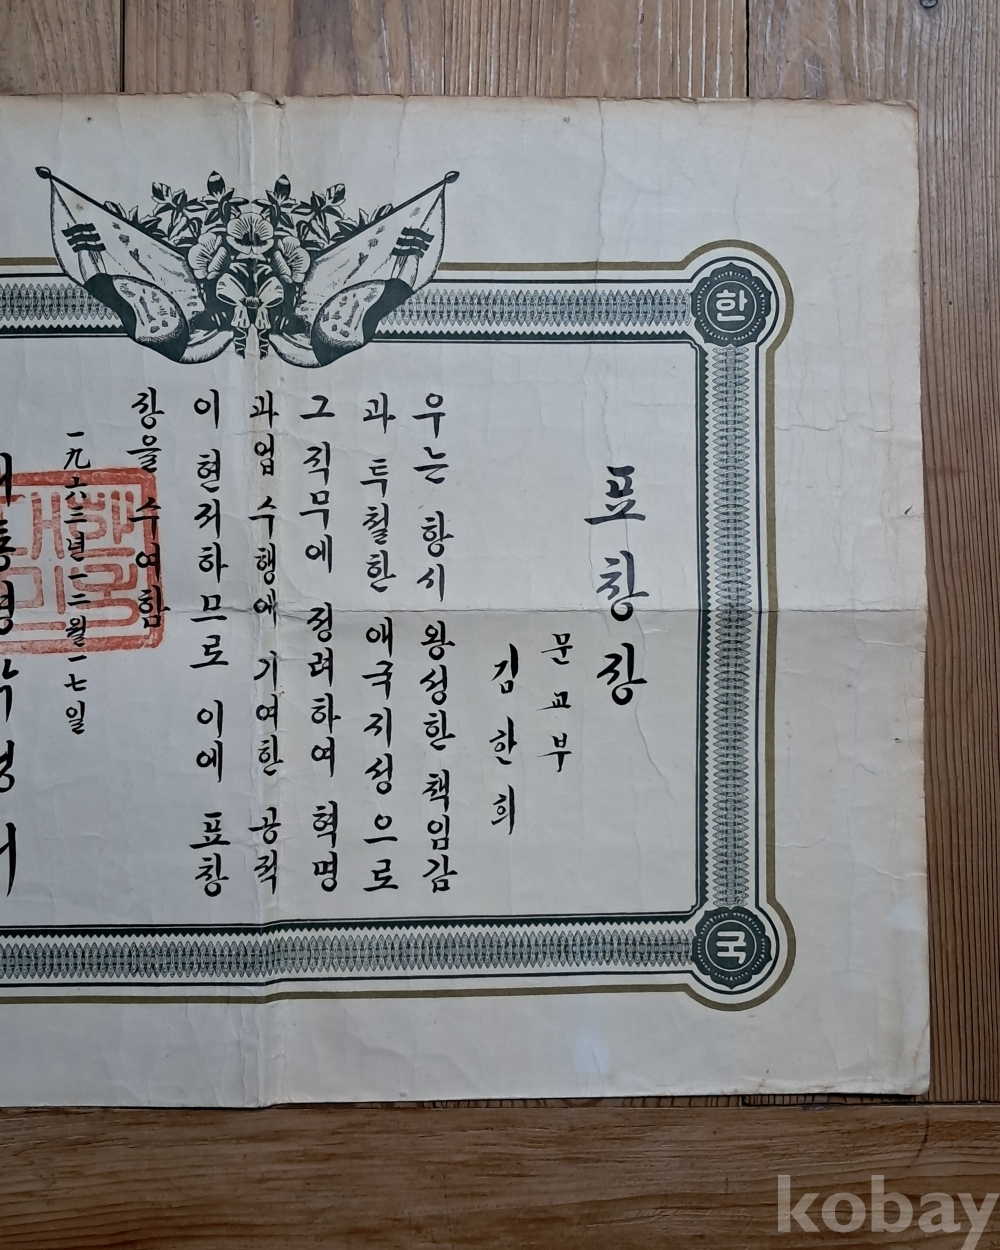 표창장
문교부
김한희
우는 항시 왕성한 책임감
과 투철한 애국지성으로
그 직무에 정려하여 혁명
과업 수행에 기여한 공적
이 현저하므로 이에 표창
장을 수여함
一九六三년 一二월 一七일
대통령 박정희
한
국
kobay